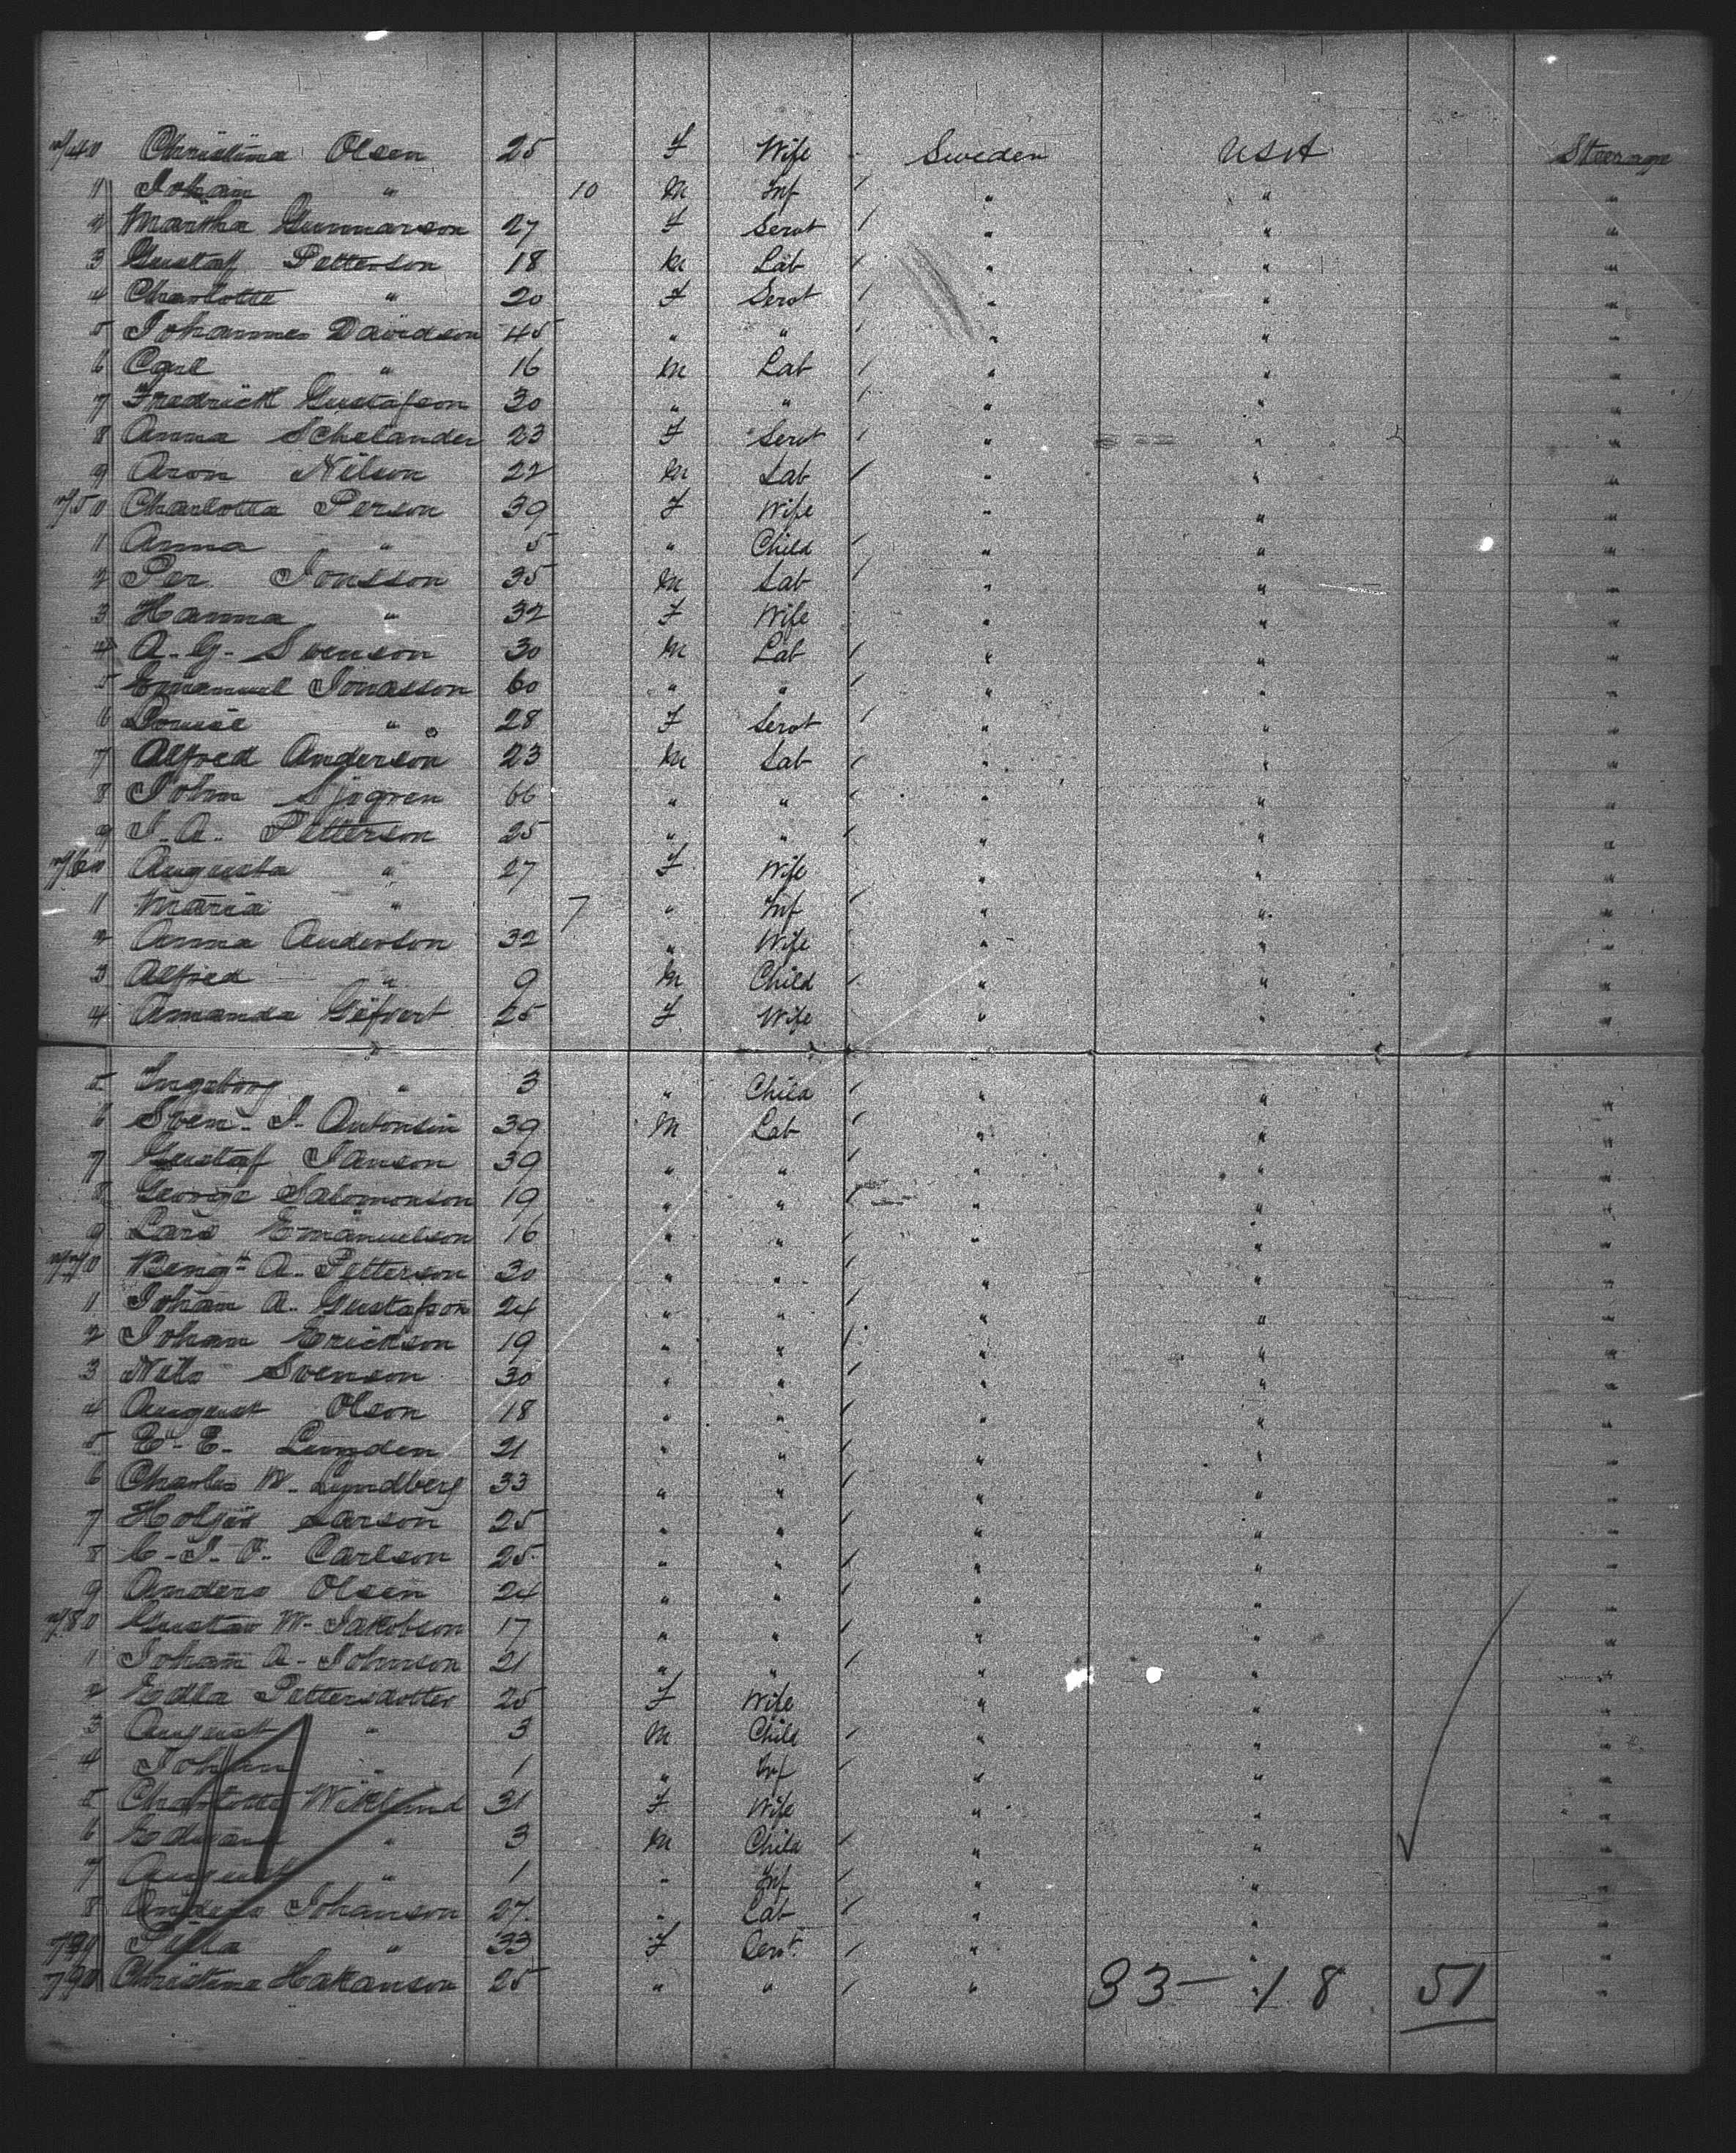 740 Christina Olsen 25 F Wife Sweden USA Steerage
1 Johan " 10 M Inf " " "
2 Martha Gunnarson 27 F Servt " " "
3 Gustaf Petterson 18 M Lab " " "
4 Charlotte " 20 F Servt " " "
5 Johannes Davidson 45 " " " " "
6 Carl " 16 M Lab " " "
7 Fredrick Gustafson 30 " " " " "
8 Anna Schelander 23 F Servt " " "
9 Aron Nilson 22 M Lab " " "
750 Charlotta Person 39 F Wife " " "
1 Anna " 5 " Child " " "
2 Per Jonsson 35 M Lab " " "
3 Hanna " 32 F Wife " " "
4 A. G. Svenson 30 M Lab " " "
5 Emanuel Jonasson 60 " " " " "
6 Louise " 28 F Servt " " "
7 Alfred Anderson 23 M Lab " " "
8 John Sjogren 66 " " " " "
9 J. A. Petterson 25 " " " " "
760 Augusta " 27 F Wife " " "
1 Maria " 7 " Inf " " "
2 Anna Anderson 32 " Wife " " "
3 Alfred " 9 M Child " " "
4 Amanda Gifvert 25 F Wife " " "
5 Ingeborg " 3 " Child " " "
6 Sven J. Antonsin 39 M Lab " " "
7 Gustaf Janson 39 " " " " "
8 George Salomonson 19 " " " " "
9 Lars Emanuelson 16 " " " " "
770 Bengt A. Petterson 30 " " " " "
1 Johan A. Gustafson 24 " " " " "
2 Johan Erickson 19 " " " " "
3 Nils Svenson 30 " " " " "
4 August Olson 18 " " " " "
5 E. E. Lunden 21 " " " " "
6 Charles W. Lyndberg 33 " " " " "
7 Holjer Larson 25 " " " " "
8 C. J. O. Carlson 25 " " " " "
9 Anders Olsen 24 " " " " "
780 Gustav W. Jakobson 17 " " " " "
1 Johan A. Johnson 21 " " " " "
2 Edla Pettersdotter 25 F Wife " " "
3 August " 3 M Child " " "
4 Johan " 1 " Inf " " "
5 Charlotte Wiklund 31 F Wife " " "
6 Edward " 3 M Child " " "
7 August " 1 " Inf " " "
8 Anders Johanson 27 " Lab " " "
789 " 33 F Servt " " "
790 Christina Hakanson 25 " " " " "
33 - 18 51